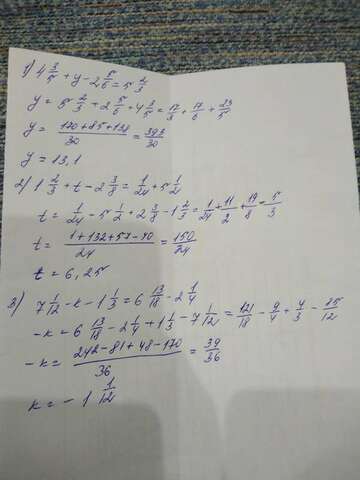 1) 4 3/5 + y - 2 5/6 = 5 2/3
y = 5 2/3 + 2 5/6 + 4 3/5 = 17/3 + 17/6 + 23/5
y = (170+85+138)/30 = 393/30
y = 13,1
2) 1 2/3 + t - 2 3/8 = 1/24 + 5 1/2
t = 1/24 - 5 1/2 + 2 3/8 - 1 2/3 = 1/24 + 11/2 + 19/8 - 5/3
t = (1+132+57-40)/24 = 150/24
t = 6,25
3) 7 1/12 - к - 1 1/3 = 6 13/18 - 2 1/4
-к = 6 13/18 - 2 1/4 + 1 1/3 - 7 1/12 = 121/18 - 9/4 + 4/3 - 85/12
-к = (242-81+48-170)/36 = 39/36
к = - 1 1/12